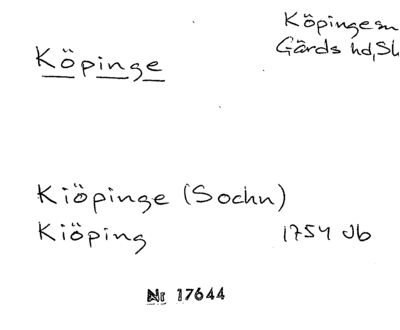 Köpinge
Köpinge sn
Gärds hd, Sk
Kiöpinge (Sochn)
Kiöping 1754 Jb
Nr 17644